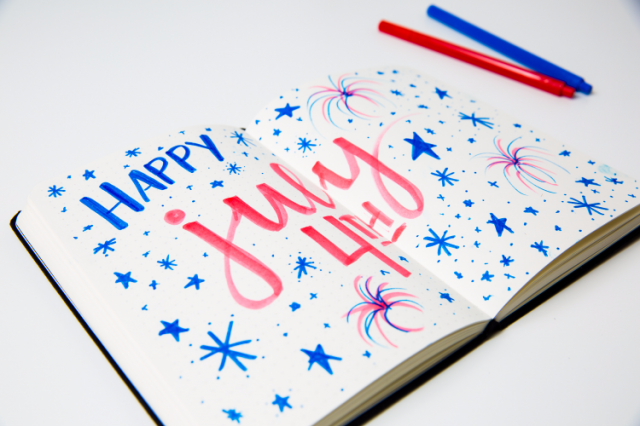 HAPPY
july
4TH